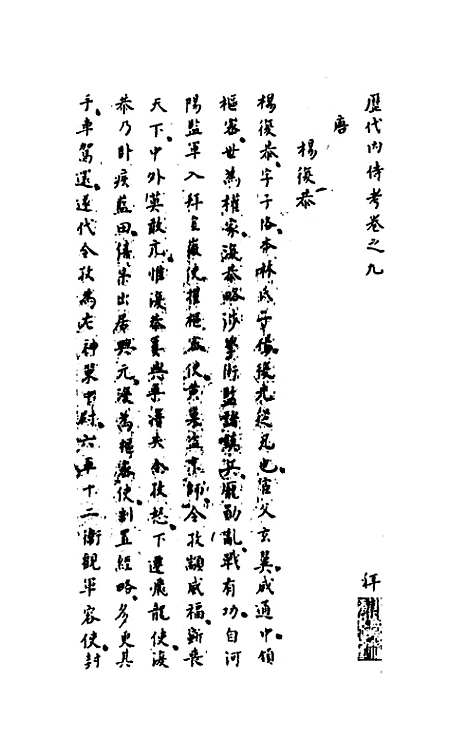 歷代內侍考卷之九
唐
楊復恭
楊復恭字子恪本林氏子楊復光從兄也宦父玄翼咸通中領
樞密世為權家復恭略涉學術監諸鎮兵龐勛亂戰有功自河
陽監軍入拜宣徽使擢樞密使黃巢盜京師令孜顓威福斲喪
天下中外莫敢亢惟復恭屢與爭得失令孜怒下遷飛龍使復
恭乃卧疾藍田僖宗出居興元復為樞密使制置經略多更其
手車駕還遂代令孜為左神策中尉六軍十二衛觀軍容使封